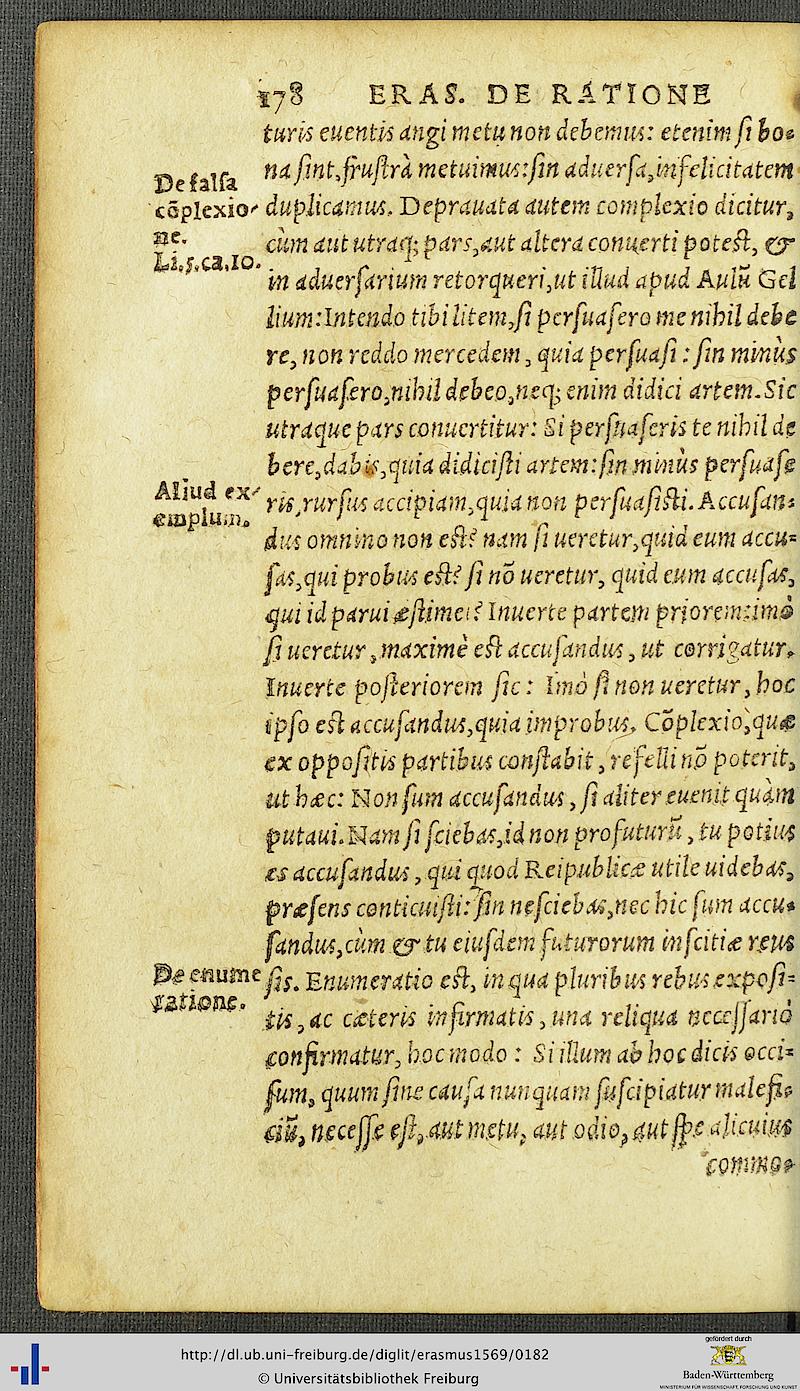 178 ERAS. DE RATIONE
turis euentis angi metu non debemus: etenim si bo-
na sint, frustrà metuimus: sin aduersa, infelicitatem
De falsa
cōplexio-
ne.
Li.5.ca.10.
duplicamus. Deprauata autem complexio dicitur,
cùm aut utraq; pars, aut altera conuerti potest, &
in aduersarium retorqueri, ut illud apud Aulũ Gel
lium: Intendo tibi litem, si persuasero me nihil debe
re, non reddo mercedem, quia persuasi: sin minùs
persuasero, nihil debeo, neq; enim didici artem. Sic
utraque pars conuertitur: Si persuaseris te nihil de
bere, dabis, quia didicisti artem: sin minùs persuase
Aliud ex-
emplum.
ris, rursus accipiam, quia non persuasisti. Accusan-
dus omnino non est? nam si ueretur, quid eum accu-
sas, qui probus est? si nō ueretur, quid eum accusas,
qui id parui æstimet? Inuerte partem priorem: imò
si ueretur, maximè est accusandus, ut corrigatur.
Inuerte posteriorem sic: Imò si non ueretur, hoc
ipso est accusandus, quia improbus. Cōplexio, quæ
ex oppositis partibus constabit, refelli nō poterit,
ut hæc: Non sum accusandus, si aliter euenit quàm
putaui. Nam si sciebas, id non profuturũ, tu potius
es accusandus, qui quod Reipublicæ utile uidebas,
præsens conticuisti: sin nesciebas, nec hic sum accu-
sandus, cùm & tu eiusdem futurorum inscitiæ reus
De enume
ratione.
sis. Enumeratio est, in qua pluribus rebus exposi-
tis, ac cæteris infirmatis, una reliqua necessariò
confirmatur, hoc modo: Si illum ab hoc dicis occi-
sum, quum sine causa nunquam suscipiatur malefi-
ciũ, necesse est, aut metu, aut odio, aut spe alicuius
commo-
http://dl.ub.uni-freiburg.de/diglit/erasmus1569/0182
© Universitätsbibliothek Freiburg
gefördert durch
Baden-Württemberg
MINISTERIUM FÜR WISSENSCHAFT, FORSCHUNG UND KUNST